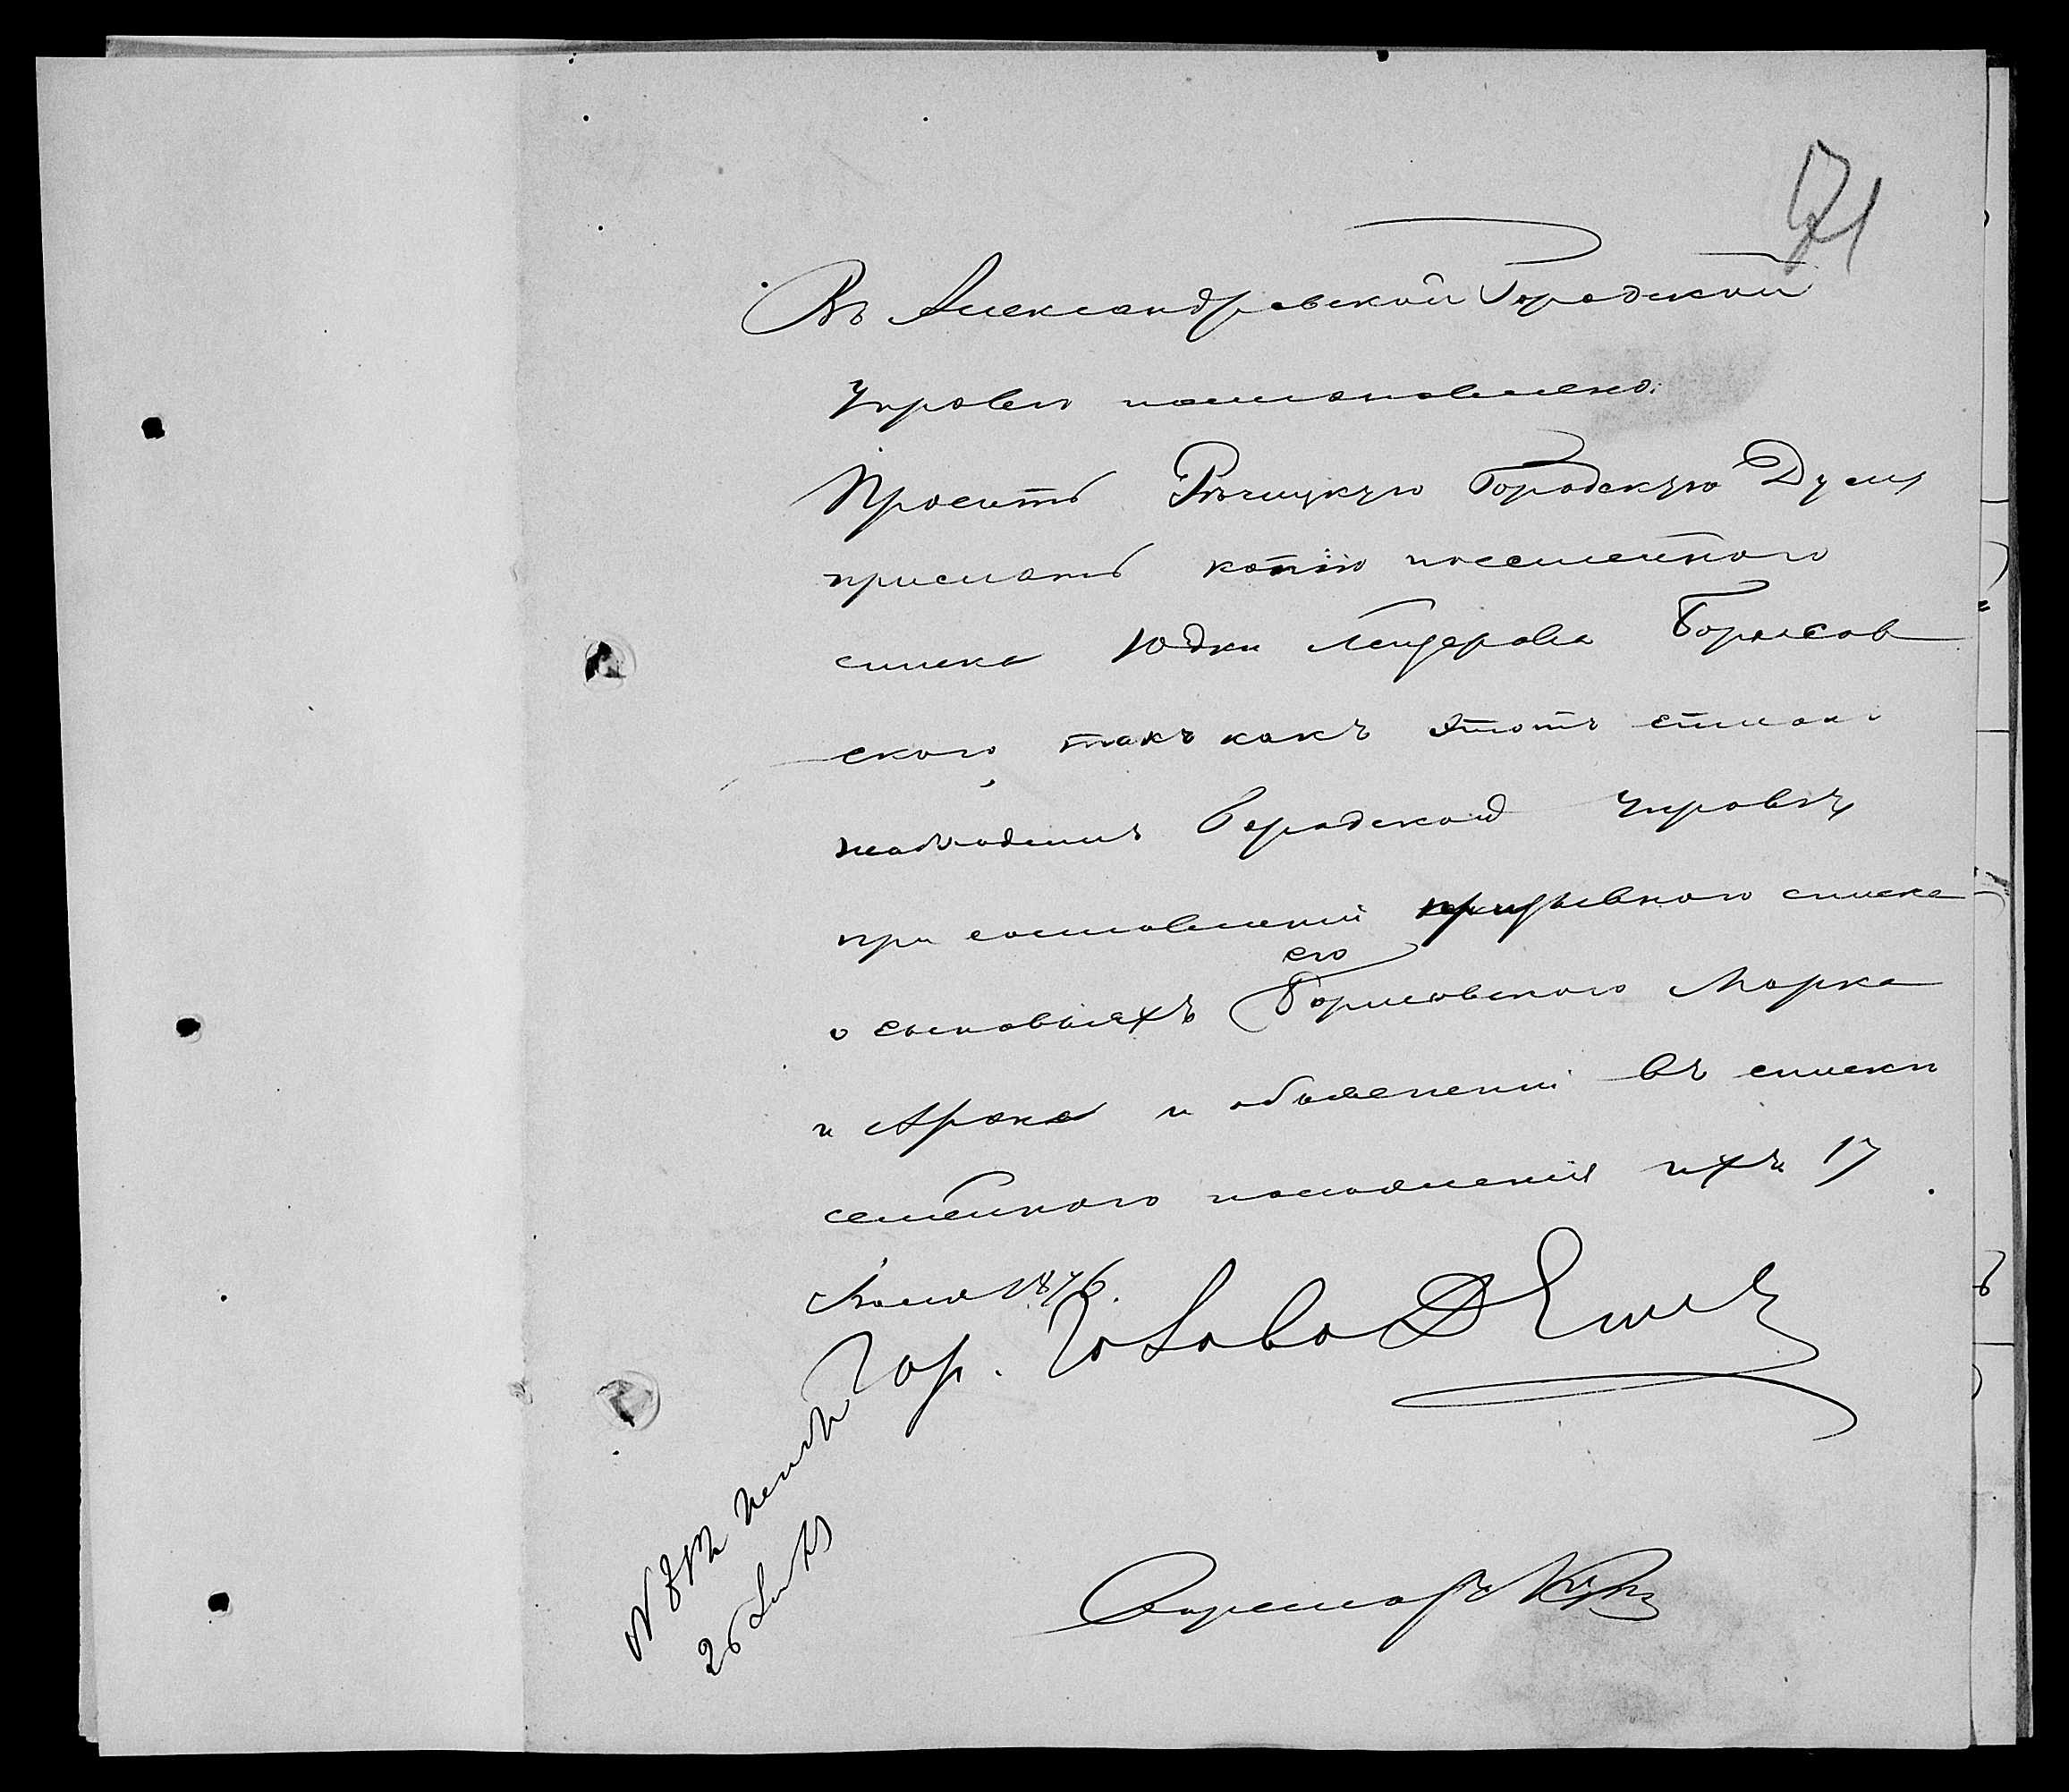 71
Въ Александровской Городской
Управѣ постановлено:
Просить Рѣчицкую Городскую Думу
прислать копію посемейнаго
списка Юдки Лейзерова Борисов
скаго, такъ какъ этотъ списокъ
необходимъ Городской Управѣ
при составленіи призывнаго списка
его
о сыновьяхъ Борисовскаго Марка
и Арона и объясненіи въ списки
семейнаго положенія ихъ 17
Іюля 1876.
Гор. Голова
Секретарь
26